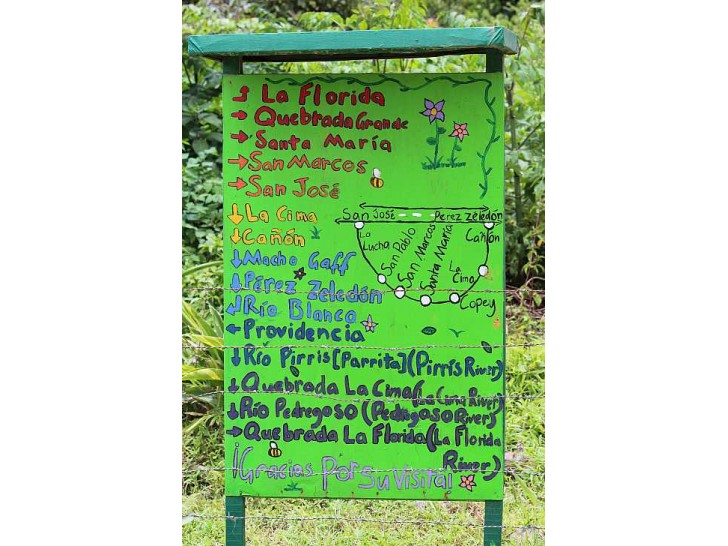 La Florida
Quebrada Grande
Santa María
San Marcos
San José
La Cima
Cañón
Macho Gaff
Pérez Zeledón
Río Blanco
Providencia
Río Pirris [Parrita] (Pirrís River)
Quebrada La Cima (La Cima River)
Río Pedregoso (Pedregoso River)
Quebrada La Florida (La Florida
River)
¡Gracias Por Su Visita!
San José Perez Zeledón
La
Lucha
San Pablo
San Marcos
Santa María
La
Cima
Copey
Cañón